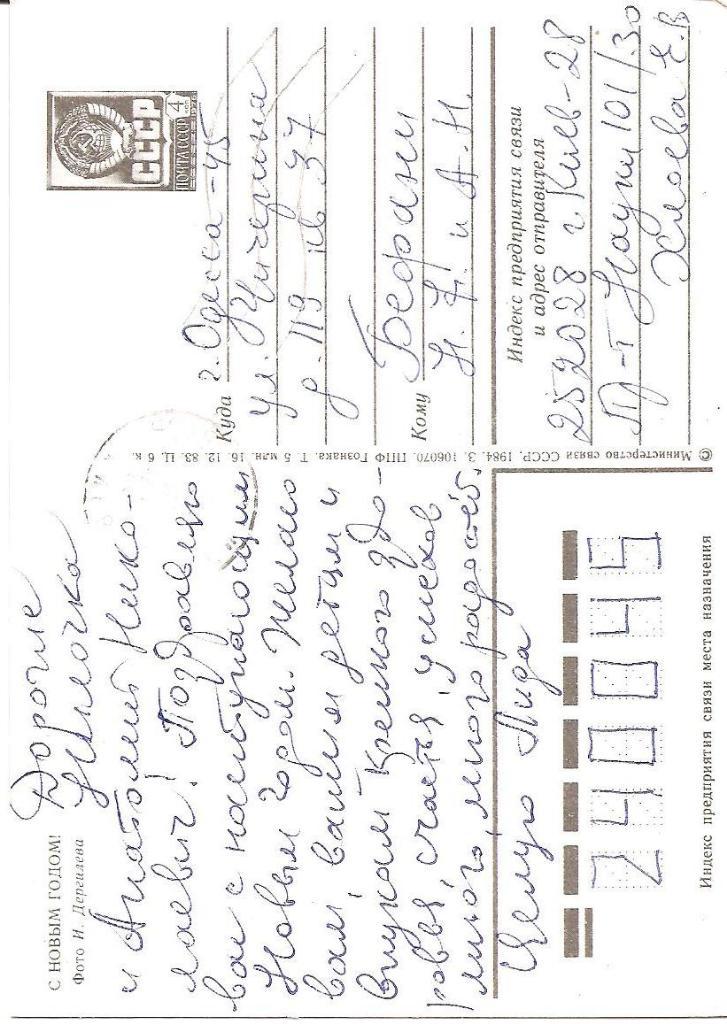 С НОВЫМ ГОДОМ!
Фото И. Дергилева
Дорогие
Ниночка
и Анатолий Нико-
лаевич! Поздравляю
вас с наступающим
Новым годом. Желаю
вам, вашим детям и
внукам крепкого здо-
ровья, счастья, успехов
много, много радостей.
Целую Лида
© Министерство связи СССР, 1984. З. 106070. ППФ Гознака. Т. 5 млн. 16. 12. 83. Ц. 6 к.
СССР
ПОЧТА СССР 4
КОП
Куда г. Одесса-45
ул. Чичерина
д. 119 кв 37
Кому Бефани
Н. Г. и А. Н.
Индекс предприятия связи
и адрес отправителя
252028 г Киев-28
Пр-т Науки 101/30
Хлоева Е.В
240045
Индекс предприятия связи места назначения